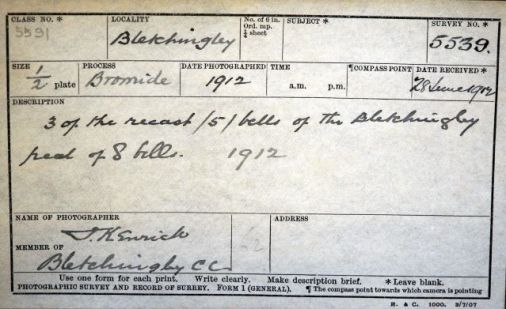 CLASS NO. * LOCALITY No. of 6 in. Ord. mp. ¼ sheet SUBJECT * SURVEY NO. *
5531 Bletchingley 5539.
SIZE PROCESS DATE PHOTOGRAPHED TIME ¶ COMPASS POINT DATE RECEIVED *
1/2 plate Bromide 1912 a.m. p.m. 28 June 1912
DESCRIPTION
3 of the recast /5/ bells of the Bletchingley
peal of 8 bells. 1912
NAME OF PHOTOGRAPHER ADDRESS
J. Kenrick
MEMBER OF
Bletchingley C.C.
Use one form for each print. Write clearly. Make description brief. * Leave blank.
PHOTOGRAPHIC SURVEY AND RECORD OF SURREY. FORM 1 (GENERAL). ¶ The compass point towards which camera is pointing
R. & C. 1000. 2/7/07